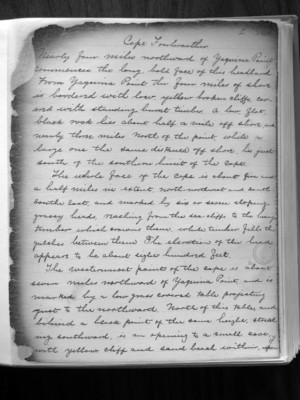 Cape Foulweather
Nearly four miles northward of Yaquina Point
commences the long, bold face of this headland
From Yaquina Point the four miles of shore
is bordered with low yellow broken cliffs cov-
ered with standing burnt timber. A low flat
black rock lies about half a mile off shore and
nearly three miles North of the point, while a
large one the same distance off shore lies just
south of the southern limit of the cape.
The whole face of the cape is about five and
a half miles in extent north northwest and south
south east, and marked by six or seven sloping
grassy heads, reaching from the sea cliffs to the heavy
timber which crowns them, while timber fills the
gulches between them. The elevation of the head
appears to be about eight hundred feet.
The westernmost point of the cape is about
seven miles northward of Yaquina Point, and is
marked by a low grass covered table projecting
out to the northward. North of this table, and
behind a low point of the same height, stretch-
ing southward, is an opening to a small cove,
with yellow cliff and sand beach within,